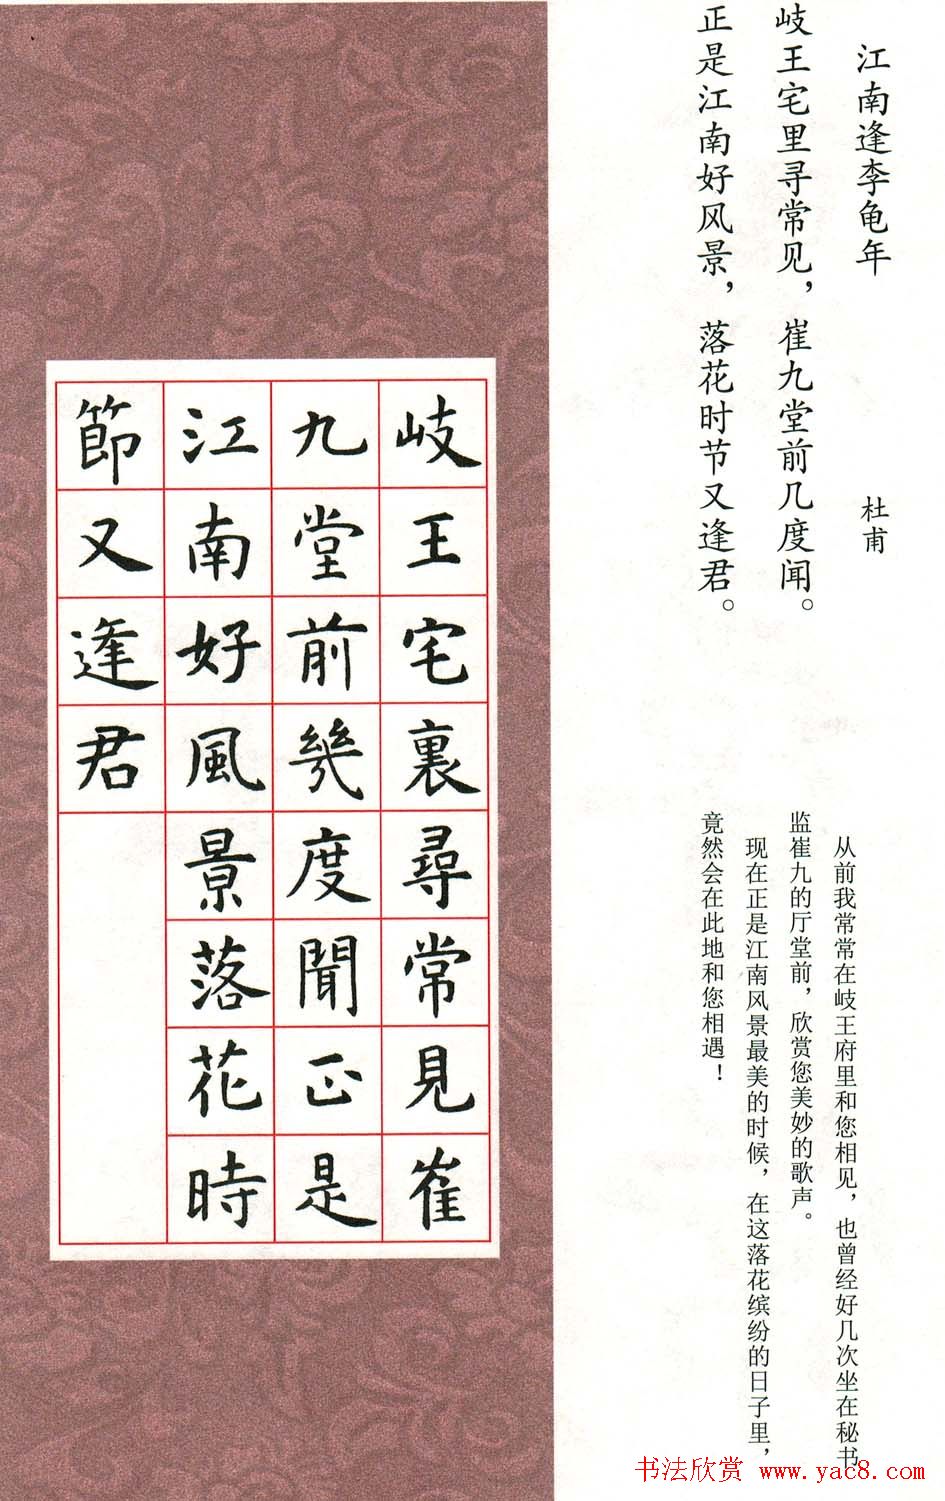 江南逢李龟年
杜甫
岐王宅里寻常见，崔九堂前几度闻。
正是江南好风景，落花时节又逢君。
从前我常常在岐王府里和您相见，也曾经好几次坐在秘书
监崔九的厅堂前，欣赏您美妙的歌声。
现在正是江南风景最美的时候，在这落花缤纷的日子里，
竟然会在此地和您相遇！
岐王宅裏尋常見崔
九堂前幾度聞正是
江南好風景落花時
節又逢君
书法欣赏 www.yac8.com